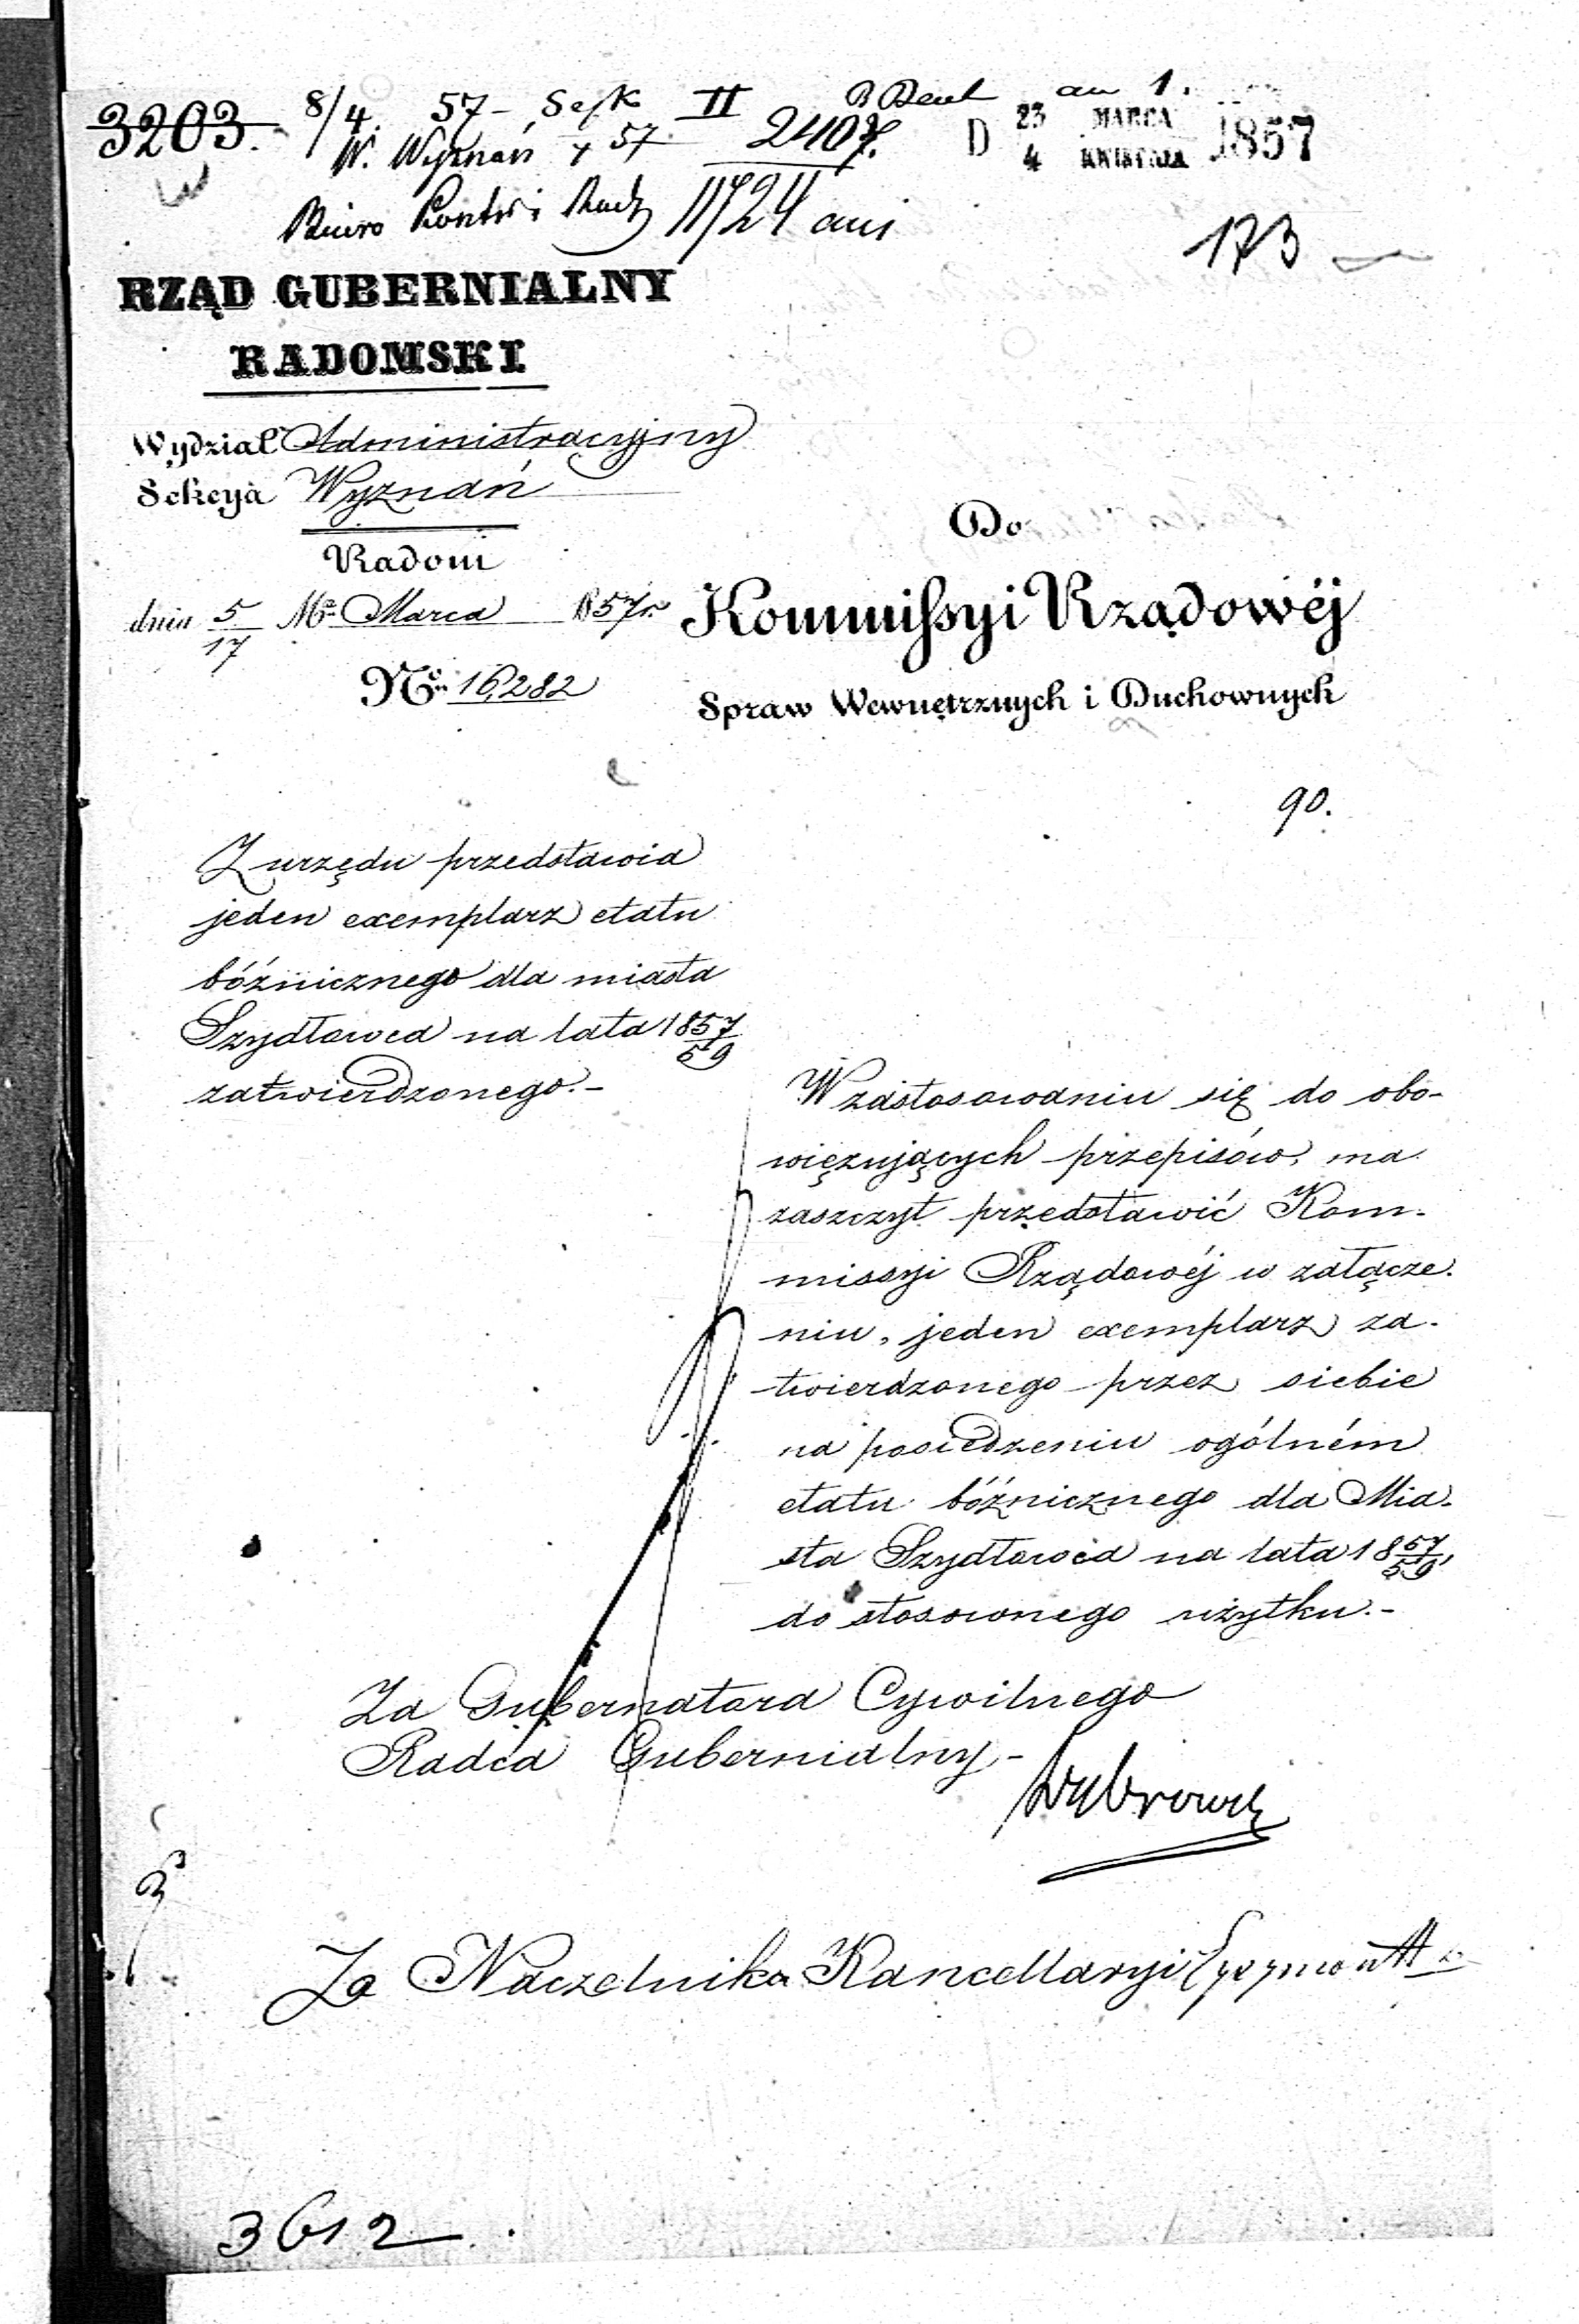 3203.
8/4 57 - II
W. Wyznań 57 2407.
D 23 MARCA 1857
4 KWIETNIA
Biuro 11724
173
RZĄD GUBERNIALNY
RADOMSKI
Wydział Administracyjny
Sekcya Wyznań
Radom
dnia 5/17 Mca Marca 1857r.
No. 16,282
Do
Kommissyi Rządowéj
Spraw Wewnętrznych i Duchownych
90.
Z urzędu przedstawia
jeden exemplarz etatu
bóźnicznego dla miasta
Szydłowca na lata 1857/59
zatwierdzonego.-
W zastosowaniu się do obo-
więzujących przepisów, ma
zaszczyt przedstawić Kom-
missyi Rządowéj w załącze-
niu, jeden exemplarz za-
twierdzonego przez siebie
na posiedzeniu ogólném
etatu bóźnicznego dla Mia-
sta Szydłowca na lata 1857/59,
do stosownego użytku.-
Za Gubernatora Cywilnego
Radca Gubernialny -
Za Naczelnika Kancellaryi
3612